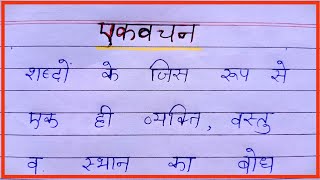 एकवचन
शब्दों के जिस रूप से
एक ही व्यक्ति, वस्तु
व स्थान का बोध